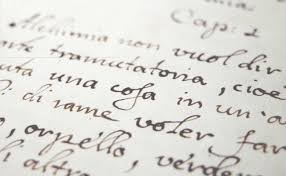 Cap: 2
Alchimia non vuol dir
arte tramutatoria, cioè
una cosa in un'a
di rame voler far
o, orpello, verder
di altra